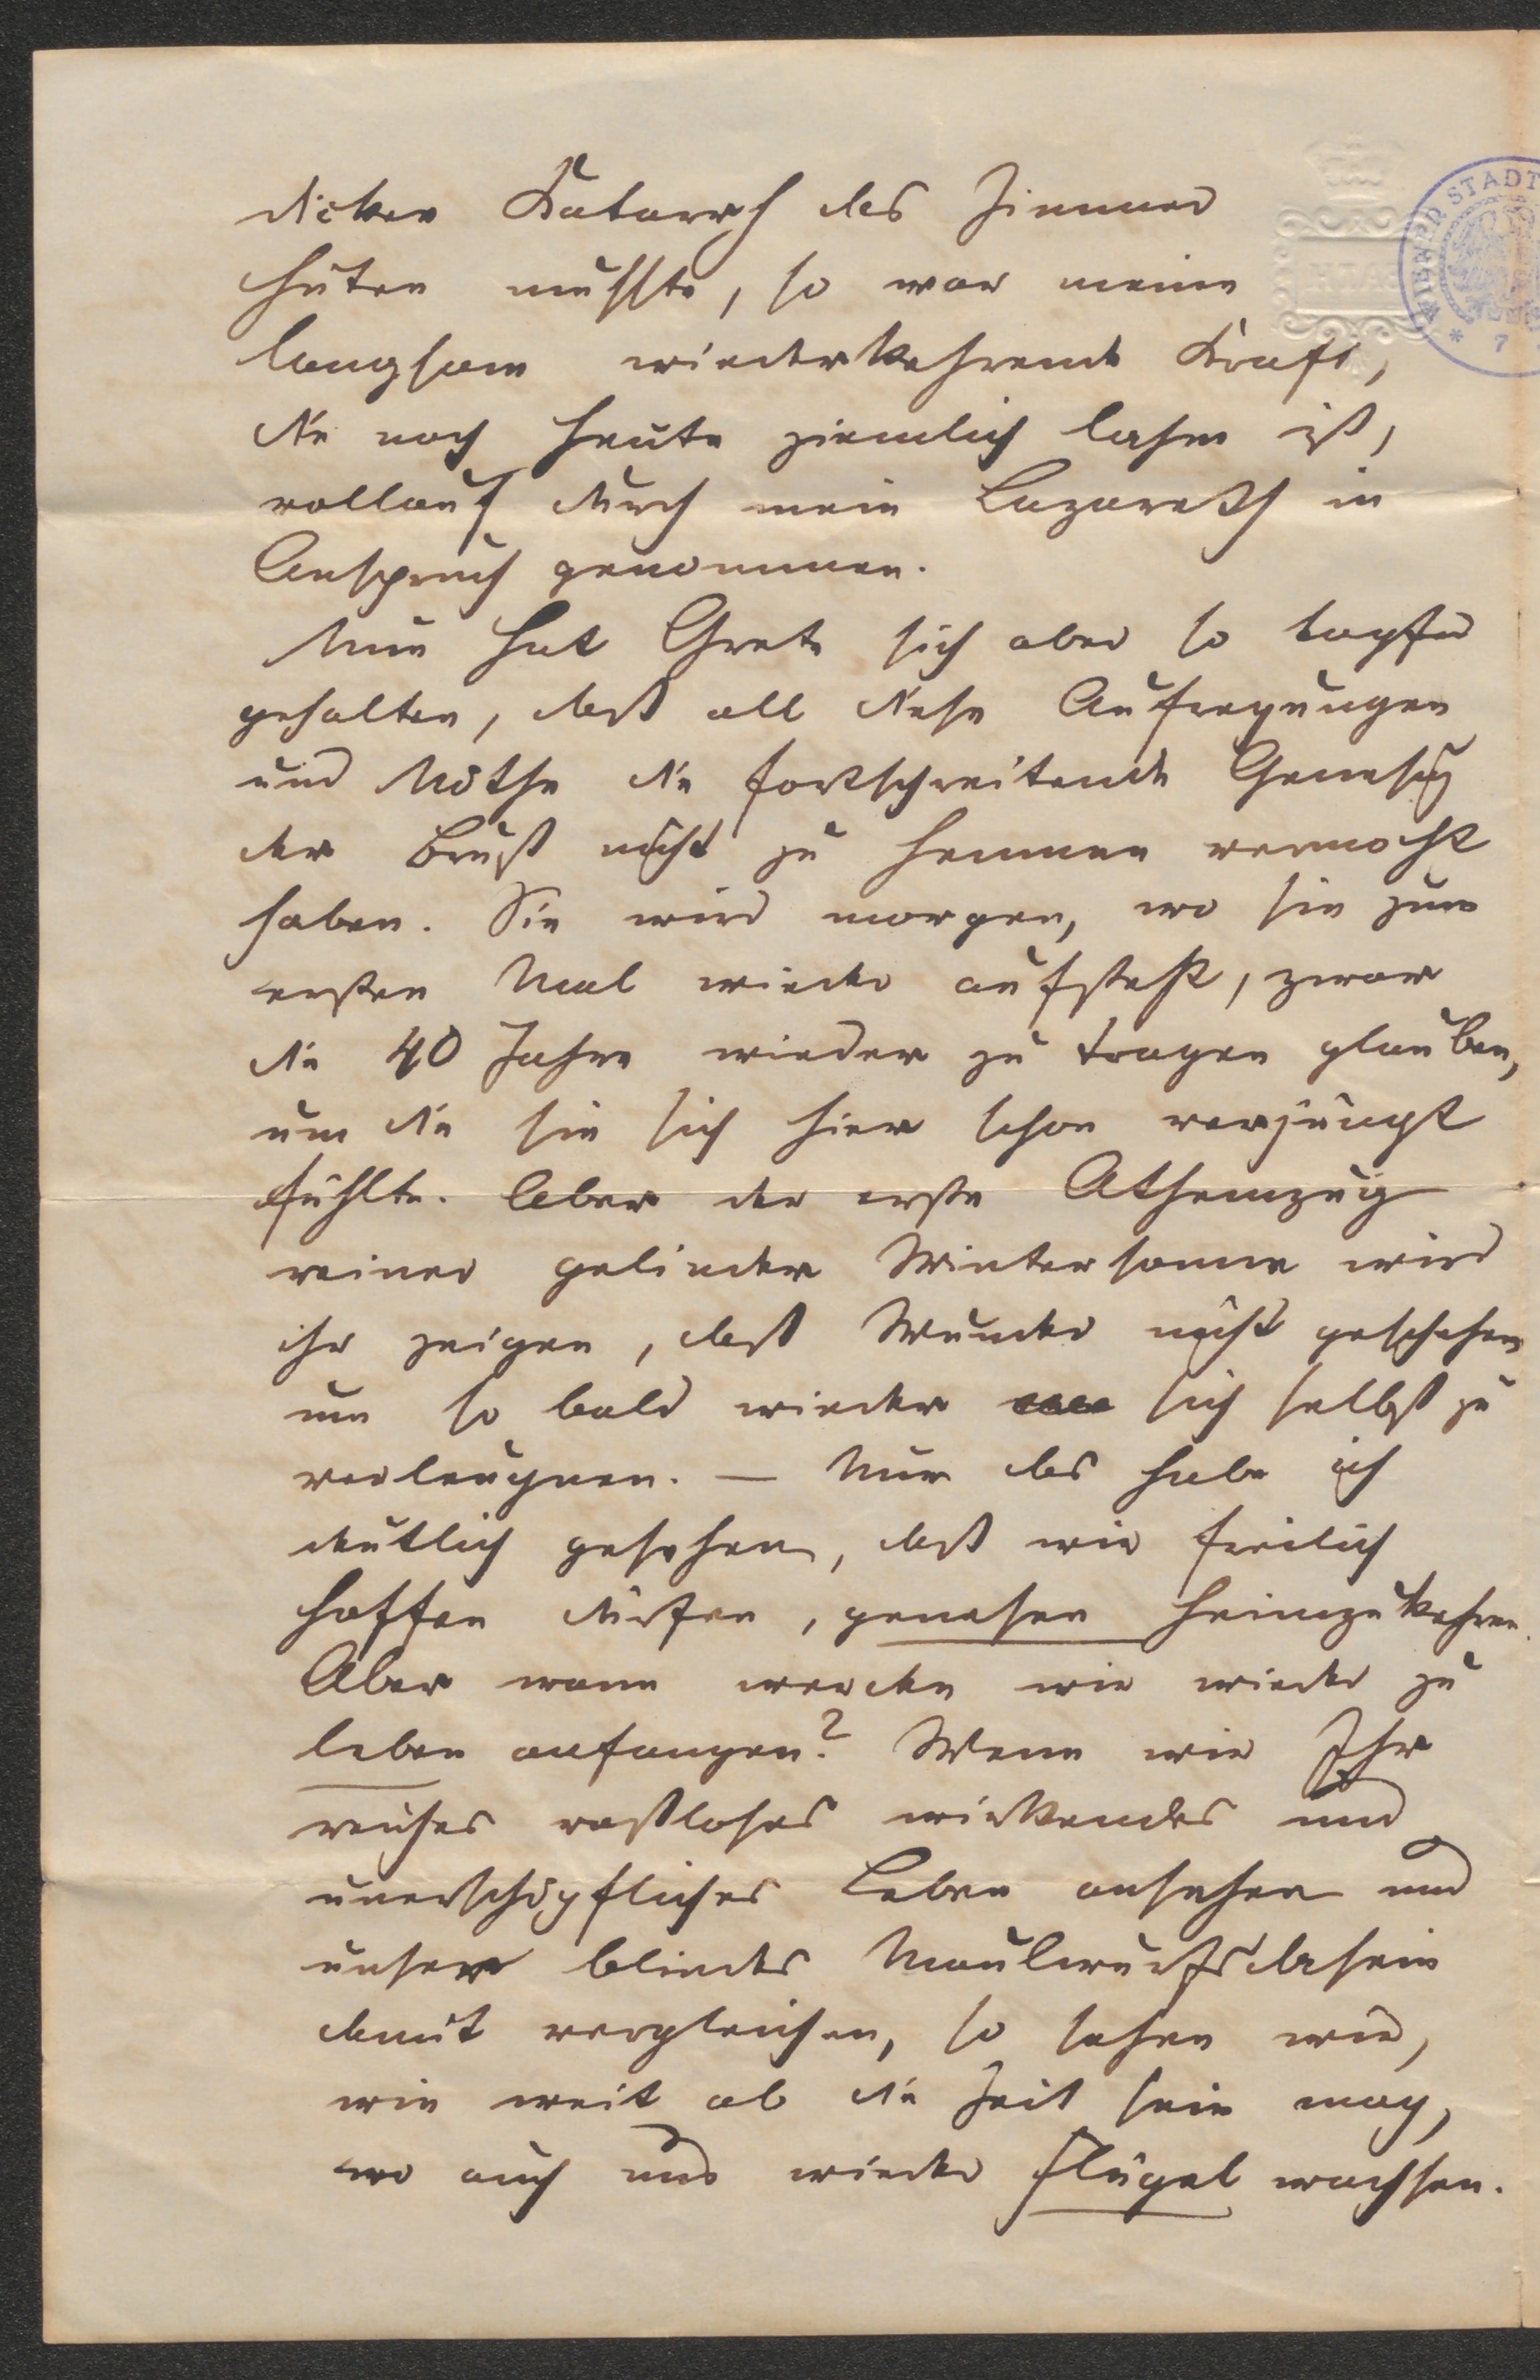 dicken Katarrh das Zimmer
hüten musste, so war meine
langsam wiederkehrende Kraft,
die noch heute ziemlich lahm ist,
vollauf durch mein Lazareth in
Anspruch genommen.
Nun hat Grete sich aber so tapfer
gehalten, daß all diese Aufregungen
und Nöthe die fortschreitende Genesung
der Brust nicht zu hemmen vermocht
haben. Sie wird morgen, wo sie zum
ersten Mal wieder aufsteht, zwar
die 40 Jahre wieder zu tragen glauben,
um die sie sich hier schon verjüngt
fühlte. Aber der erste Athemzug
reiner gelinder Wintersonne wird
ihr zeigen, daß Wunder nicht geschehen
um so bald wieder sich selbst zu
verleugnen. — Nur das habe ich
deutlich gesehen, daß wir freilich
hoffen dürfen, genesen heimzukehren.
Aber wann werden wir wieder zu
leben anfangen? Wenn wir Ihr
reiches rastloses wirkendes und
unerschöpfliches Leben ansehen und
unser blindes Maulwurfsdasein
damit vergleichen, so sehen wir,
wie weit ab die Zeit sein mag,
wo auch uns wieder Flügel wachsen.
WIENER STADT
* 7